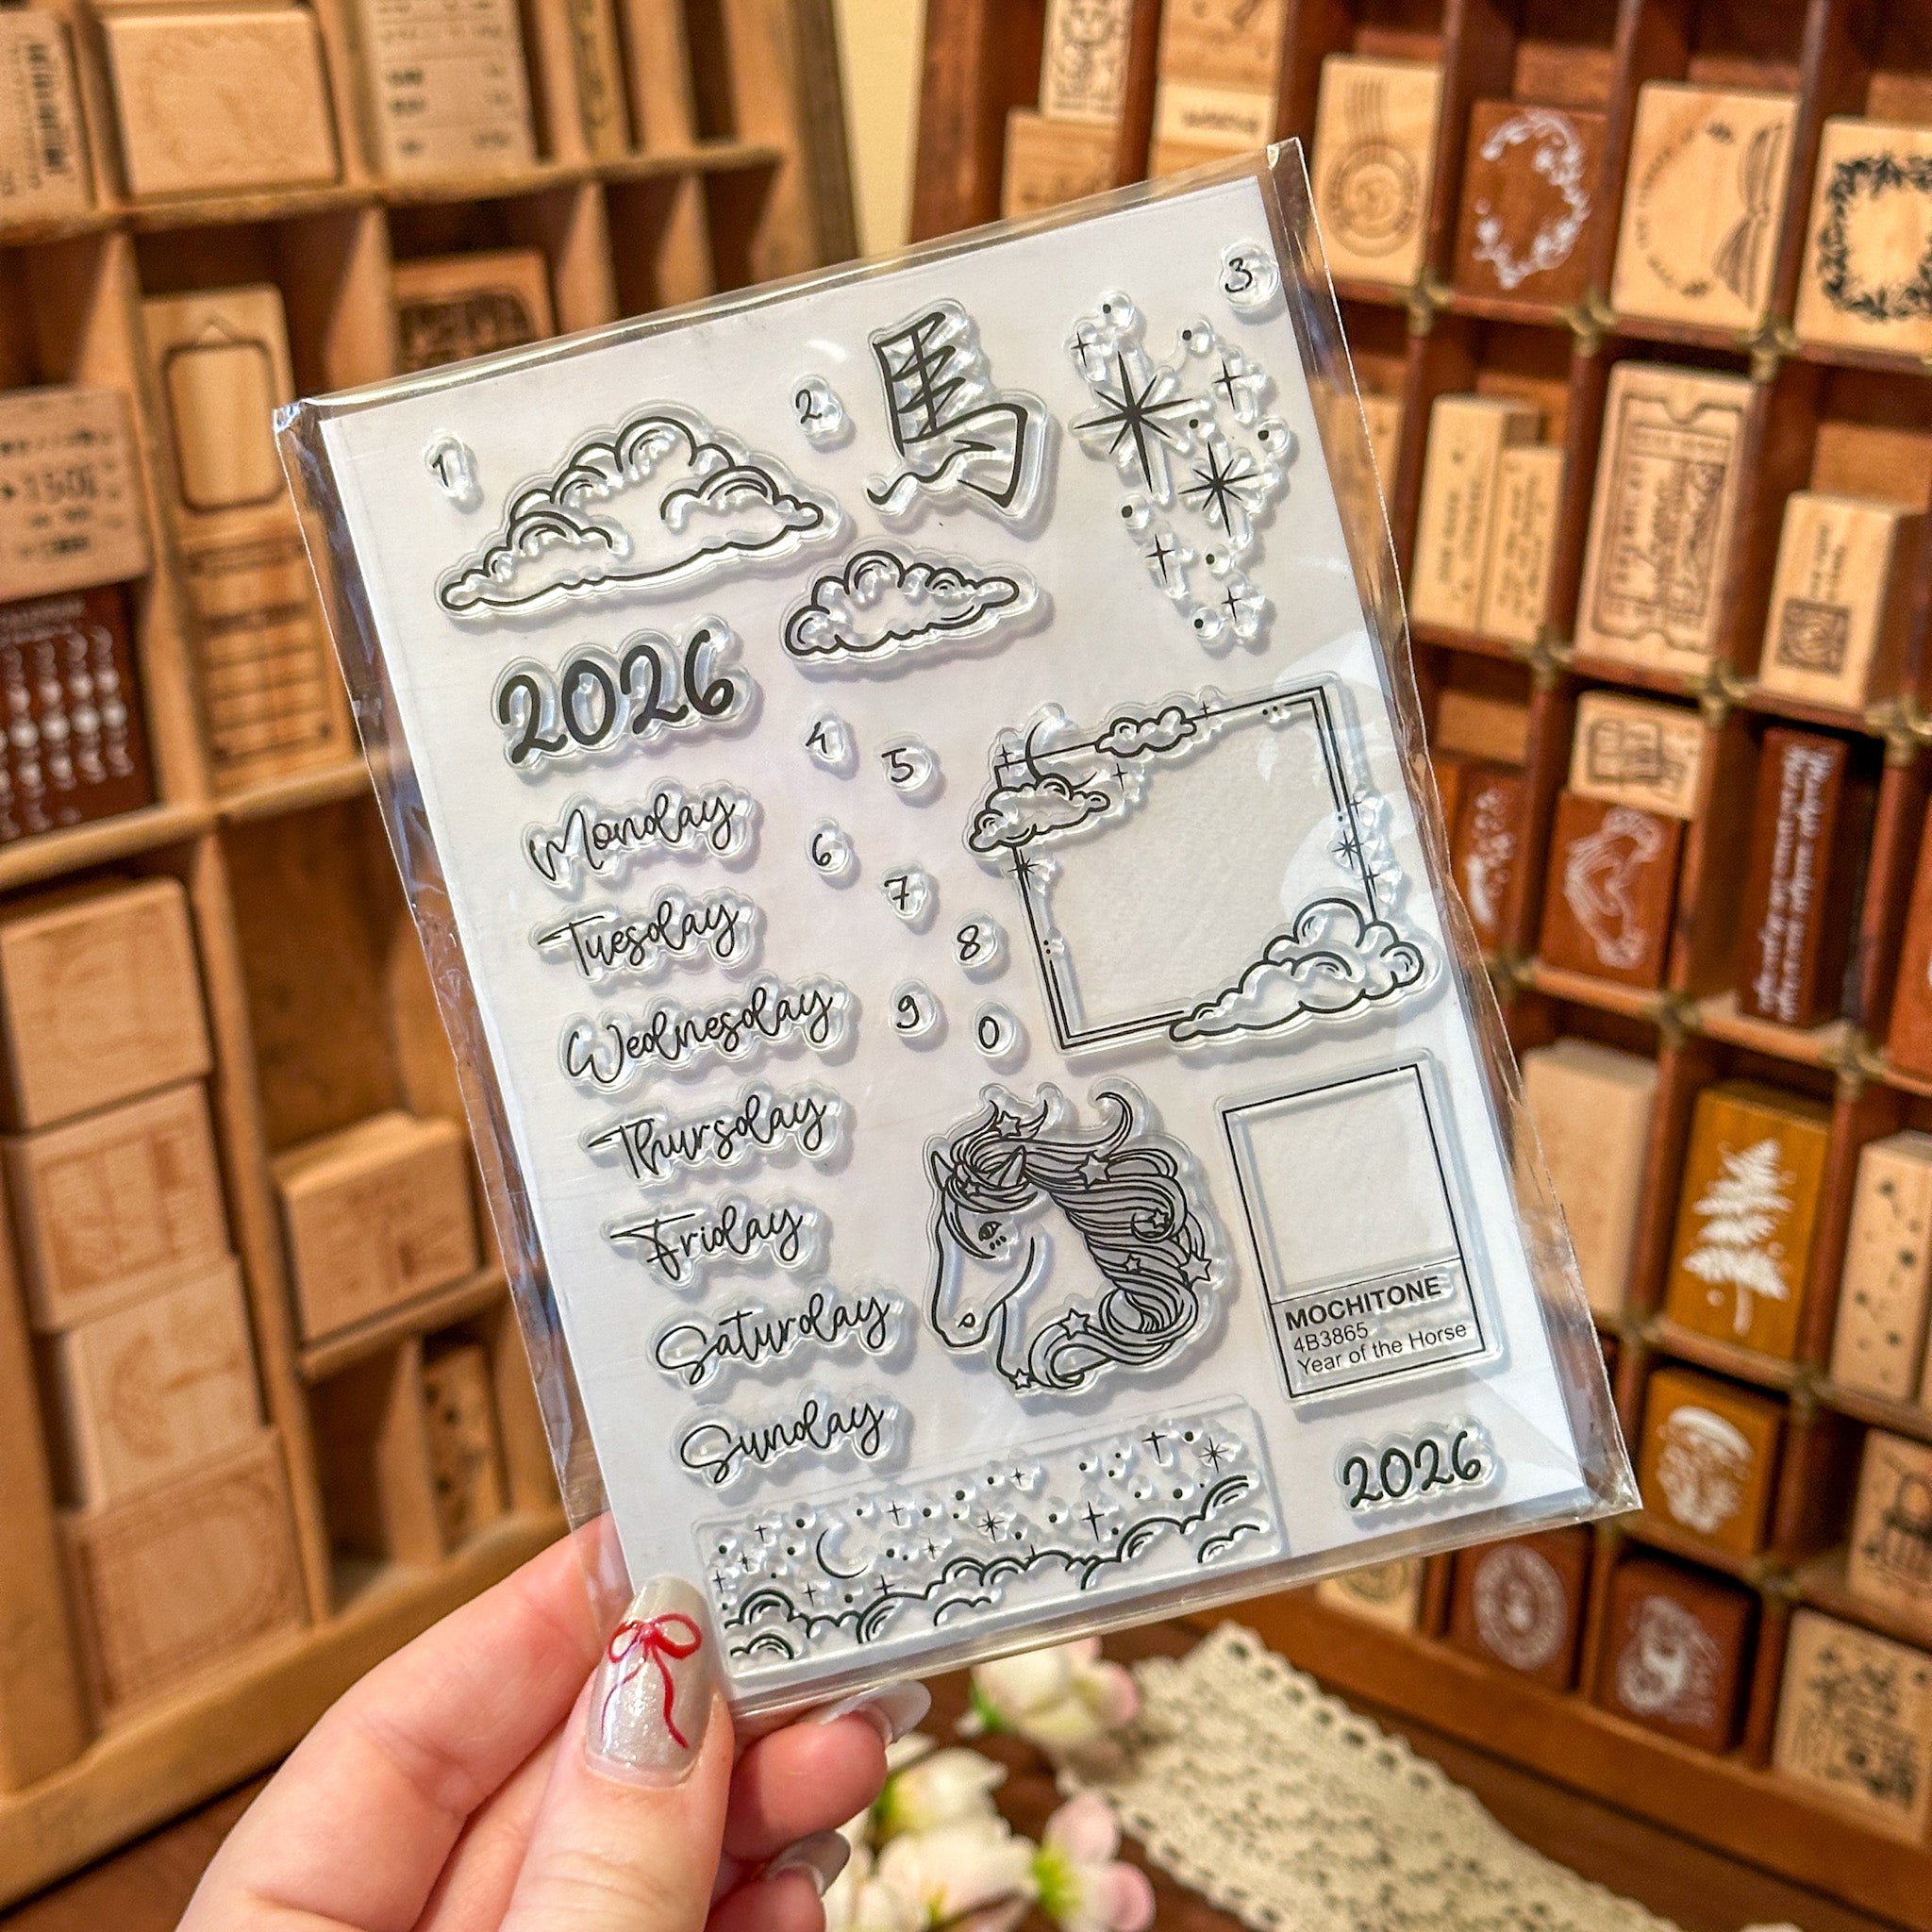 1
2
馬
3
2026
4
5
6
7
8
9
0
Monday
Tuesday
Wednesday
Thursday
Friday
Saturday
Sunday
MOCHITONE
4B3865
Year of the Horse
2026